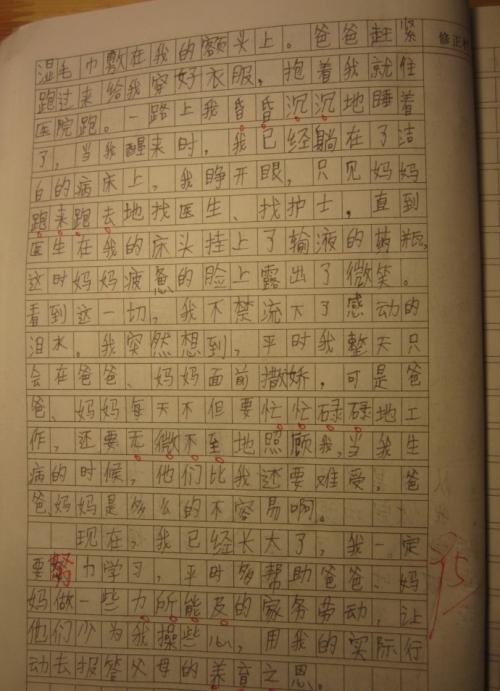 湿毛巾敷在我的额头上。爸爸赶紧
修正
跑过来给我穿好衣服，抱着我就往
医院跑。一路上我昏昏沉沉地睡着
了，当我醒来时，我已经躺在了洁
白的病床上，我睁开眼，只见妈妈
跑来跑去地找医生、找护士，直到
医生在我的床头挂上了输液的药瓶，
这时妈妈疲惫的脸上露出了微笑。
看到这一切，我不禁流下了感动的
泪水。我突然想到，平时我整天只
会在爸爸、妈妈面前撒娇，可是爸
爸、妈妈每天不但要忙忙碌碌地工
作，还要无微不至地照顾我，当我生
病的时候，他们比我还要难受，爸
爸妈妈是多么的不容易啊。
现在，我已经长大了，我一定
要努力学习，平时多帮助爸爸、妈
妈做一些力所能及的家务劳动，让
他们少为我操些心，用我的实际行
动去报答父母的养育之恩。
95